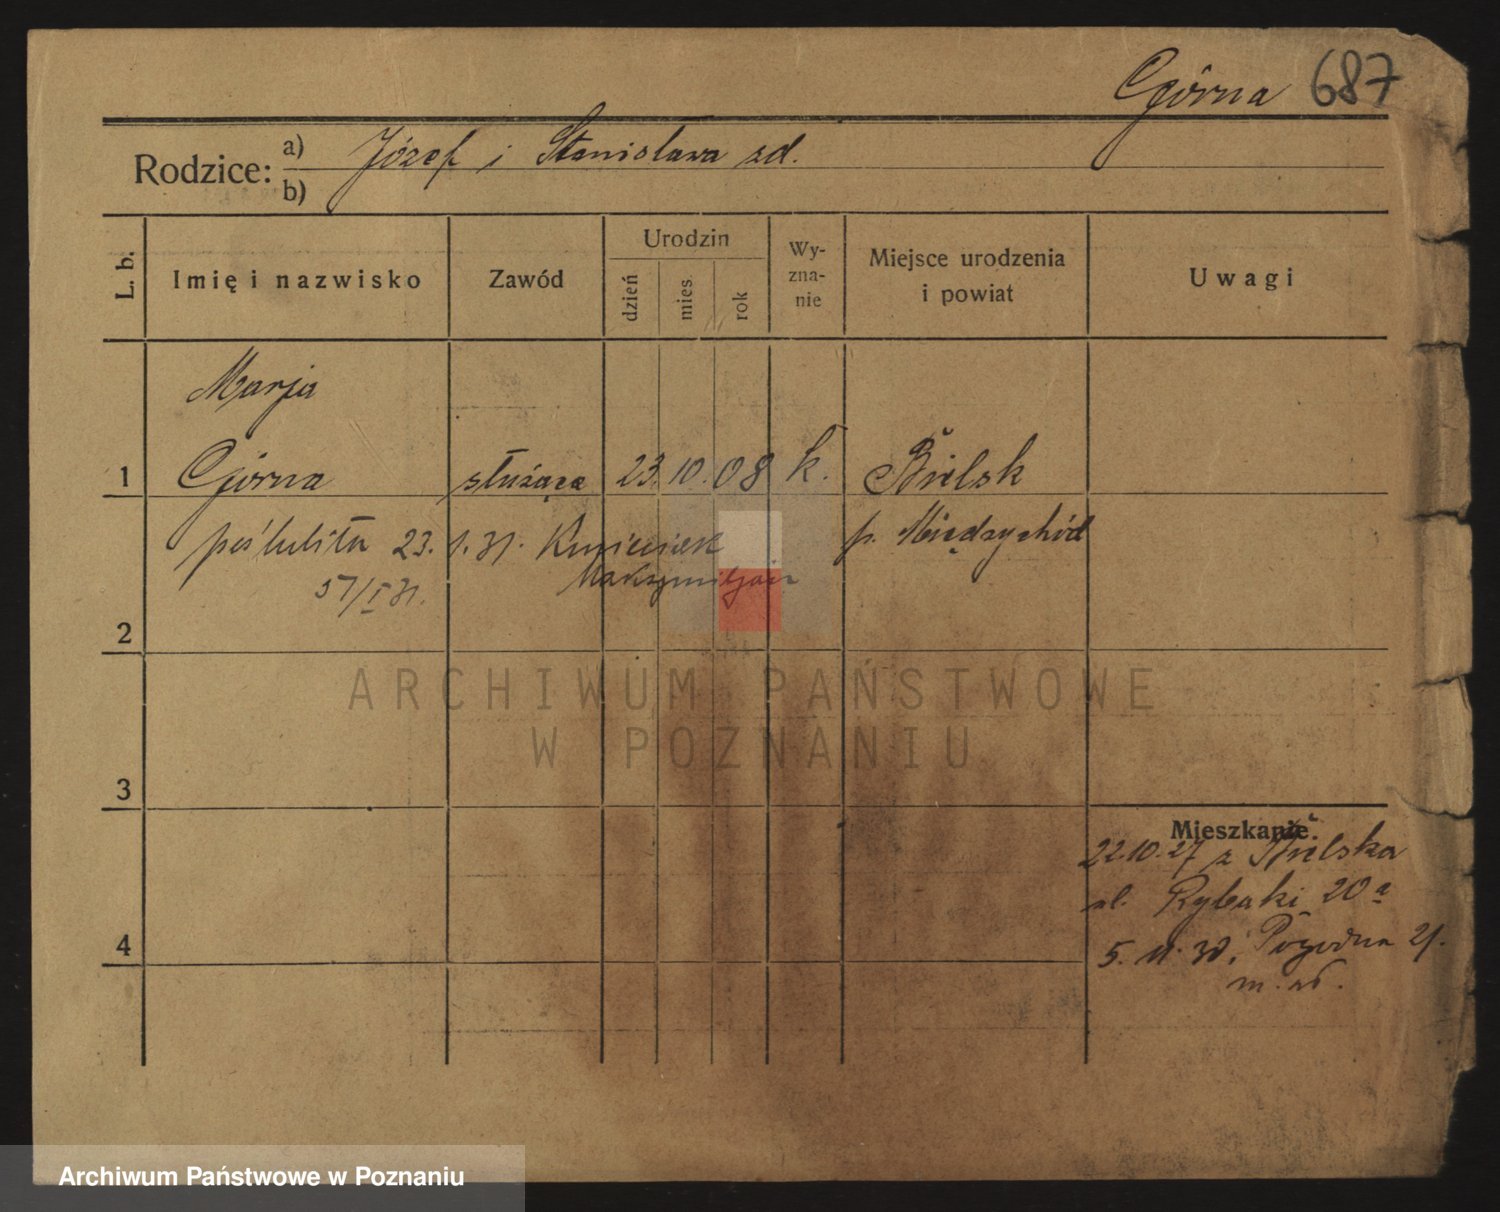 Górna 687
Rodzice: a) Józef i Stanisława zd.
b)
L. b. Imię i nazwisko Zawód Urodzin dzień mies. rok Wyznanie Miejsce urodzenia i powiat Uwagi
Marja
1 Górna służąca 23. 10. 08 k. Bielsk
poślubiła 23. 1. 31. Kmieciek p. Międzychód
Maksymiljan
57/I 31.
2
3
Mieszkanie.
22.10.27 z Bielska
ul. Rybaki 20a
4
5. 11. 30, Pogodna 21.
ARCHIWUM PAŃSTWOWE
W POZNANIU
Archiwum Państwowe w Poznaniu